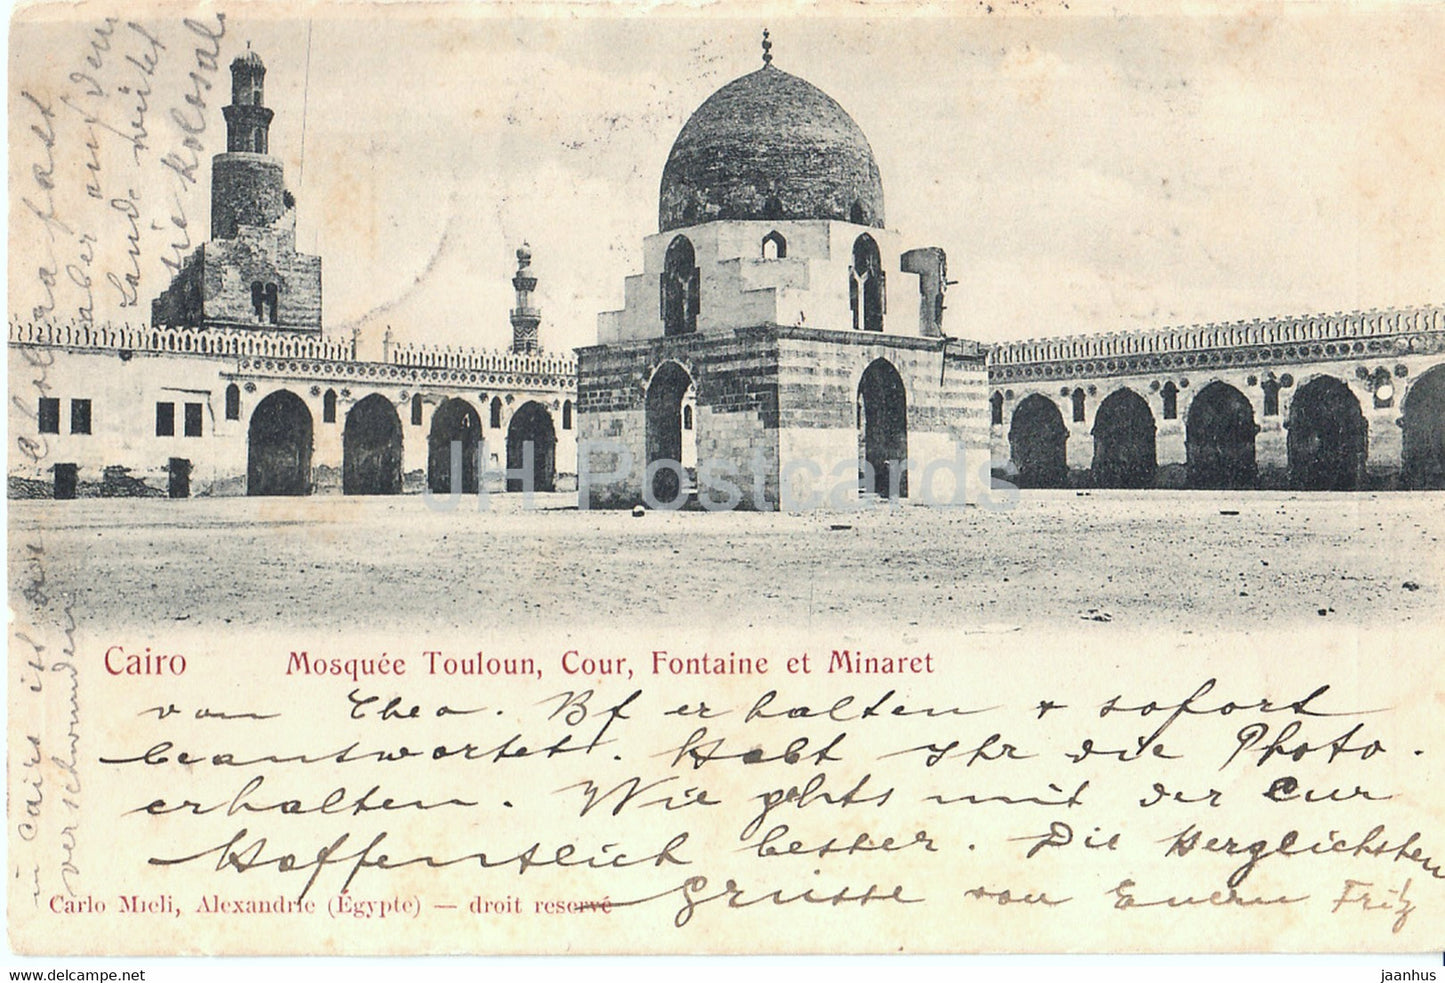 in Cairo ist die Cholera fast
verschwunden aber auf dem
Lande wütet
sie kolosal
JH Postcards
Cairo Mosquée Touloun, Cour, Fontaine et Minaret
von Theo. Bf erhalten + sofort
beantwortet. Habt Ihr die Photo.
erhalten. Wie gehts mit der Cur
Hoffentlich besser. Die Herzlichsten
Grüsse von Euerm Fritz
Carlo Mieli, Alexandrie (Égypte) — droit reservé
www.delcampe.net
jaanhus